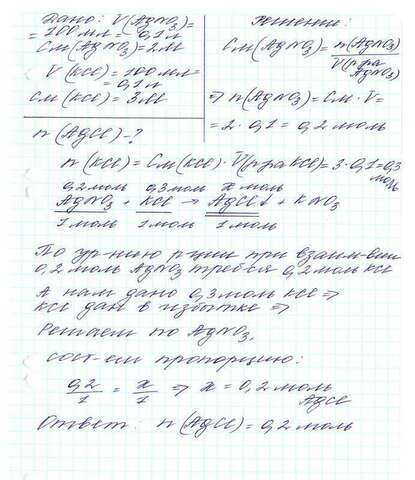 Дано: V(AgNO₃)=
= 100 мл = 0,1 л
См(AgNO₃)=2М
V(KCl)=100 мл=
=0,1 л
См(KCl)=3М
n(AgCl)-?
Решение:
См(AgNO₃)=n(AgNO₃)/V(р-ра AgNO₃)
⇒ n(AgNO₃)=См·V=
=2·0,1=0,2 моль
n(KCl)=См(KCl)·V(р-ра KCl)=3·0,1=0,3 моль
0,2 моль 0,3 моль x моль
AgNO₃ + KCl → AgCl↓ + KNO₃
1 моль 1 моль 1 моль
По ур-нию р-ции при взаим-вии
0,2 моль AgNO₃ треб-ся 0,2 моль KCl
А нам дано 0,3 моль KCl ⇒
KCl дан в избытке ⇒
Решаем по AgNO₃.
сост-им пропорцию:
0,2/1 = x/1 ⇒ x = 0,2 моль AgCl
Ответ: n(AgCl)=0,2 моль